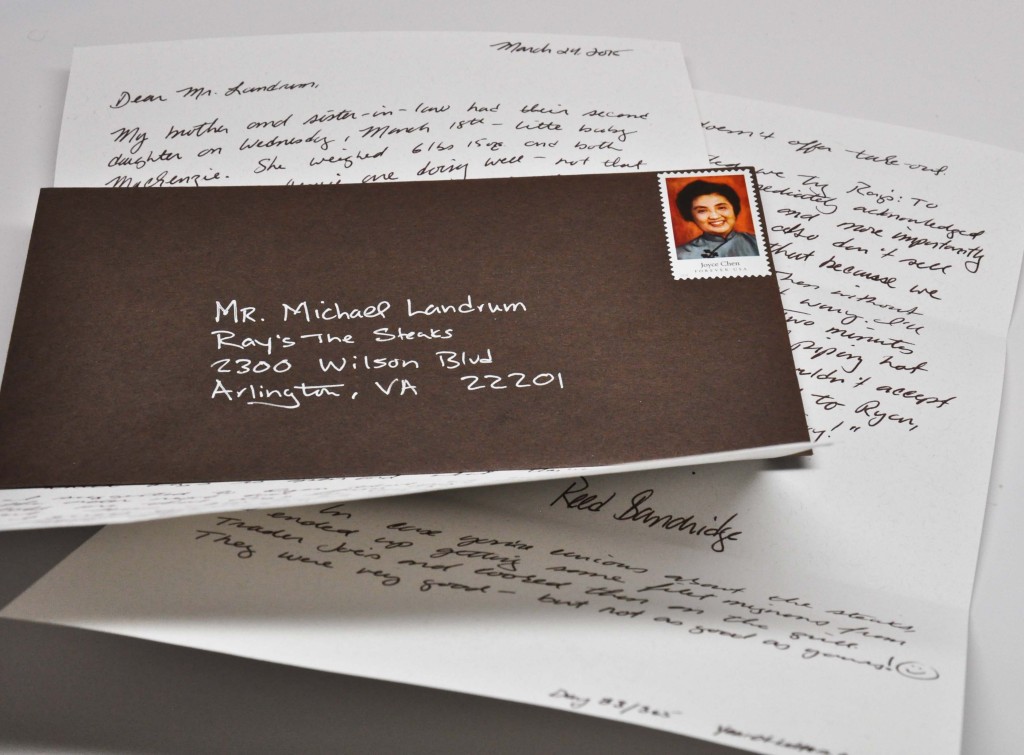 March 24, 2015
Dear Mr. Landrum,
My brother and sister-in-law had their second
daughter on Wednesday, March 18th - little baby
MacKenzie. She weighed 6lbs 15oz and both
are doing well - not that
doesn't offer take-out.
Ray's: To
acknowledged
and more importantly
also don't sell
that because we
without
wrong. I'll
two minutes
piping hot
accept
to Ryan,
!"
Joyce Chen
FOREVER USA
Mr. Michael Landrum
Ray's The Steaks
2300 Wilson Blvd
Arlington, VA 22201
Reed Sandridge
In case you're curious about the steaks,
ended up getting some filet mignons from
Trader Joe's and cooked them on the grill.
They were very good - but not as good as yours! ☺
Day 83/365